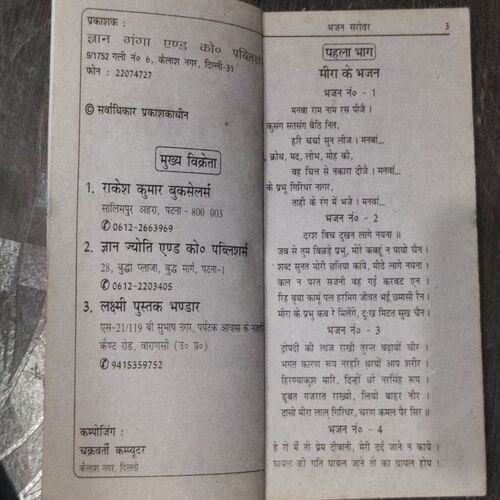 प्रकाशक :
ज्ञान गंगा एण्ड को० पब्लिशर्स
9/1752 गली नं० 6, कैलाश नगर, दिल्ली-31
फोन : 22074727
© सर्वाधिकार प्रकाशकाधीन
मुख्य विक्रेता
1. राकेश कुमार बुकसेलर्स
सालिमपुर अहरा, पटना - 800 003
✆ 0612-2663969
2. ज्ञान ज्योति एण्ड को० पब्लिशर्स
28, बुद्धा प्लाजा, बुद्ध मार्ग, पटना-1
✆ 0612-2203405
3. लक्ष्मी पुस्तक भण्डार
एस-21/119 बी सुभाष नगर, पर्यटक आवास के
कैण्ट रोड, वाराणसी (उ० प्र०)
✆ 9415359752
कम्पोजिंग :
चक्रवर्ती कम्प्यूटर
कैलाश नगर, दिल्ली
भजन सरोवर 3
पहला भाग
मीरा के भजन
भजन नं० - 1
मनबा राम नाम रस पीजै ।
कुसंग सतसंग बैठि नित,
हरि चर्चा सुन लीज । मनबां...
क्रोध, मद, लोभ, मोह को,
वह चित्त से नकारा दीजै । मनवां...
के प्रभु गिरिधर नागर,
ताही के रंग में भजे । मनवां...
भजन नं० - 2
दरश विच दुखन लागे नयना ।
जब से तुम बिछड़े प्रभु, मोरे कबहूं न पायो चैन ।
शब्द सुनत मोरी छतिया कांपे, मीठे लागे नयना ।
कल न परत सजनी वह गई करबट एन ।
रिह वृथा कामूं पल हरमिग जीवत भई छमासी रेन ।
मीरा के प्रभु कब रे मिलेंगे, दुःख मिटत सुख चैन ।
भजन नं० - 3
द्रोपदी की लाज राखी तुरन्त बढ़ायो चीर ।
भगत कारण रूप नरहरि धरयों आप शरीर ।
हिरणयाकुश मारि, दिन्हों धरे नरसिंह रूप ।
डूबत गजरात राख्यो, लियो बाहर नीर ।
दासी मीरा लाल गिरिधर, चरण कमल पैर सिर ॥
भजन नं० - 4
हे रो मैं तो प्रेम दीवानी, मेरी दर्द जाने न काये ।
घायल की गति घायल जाने तो का घायल होय ।